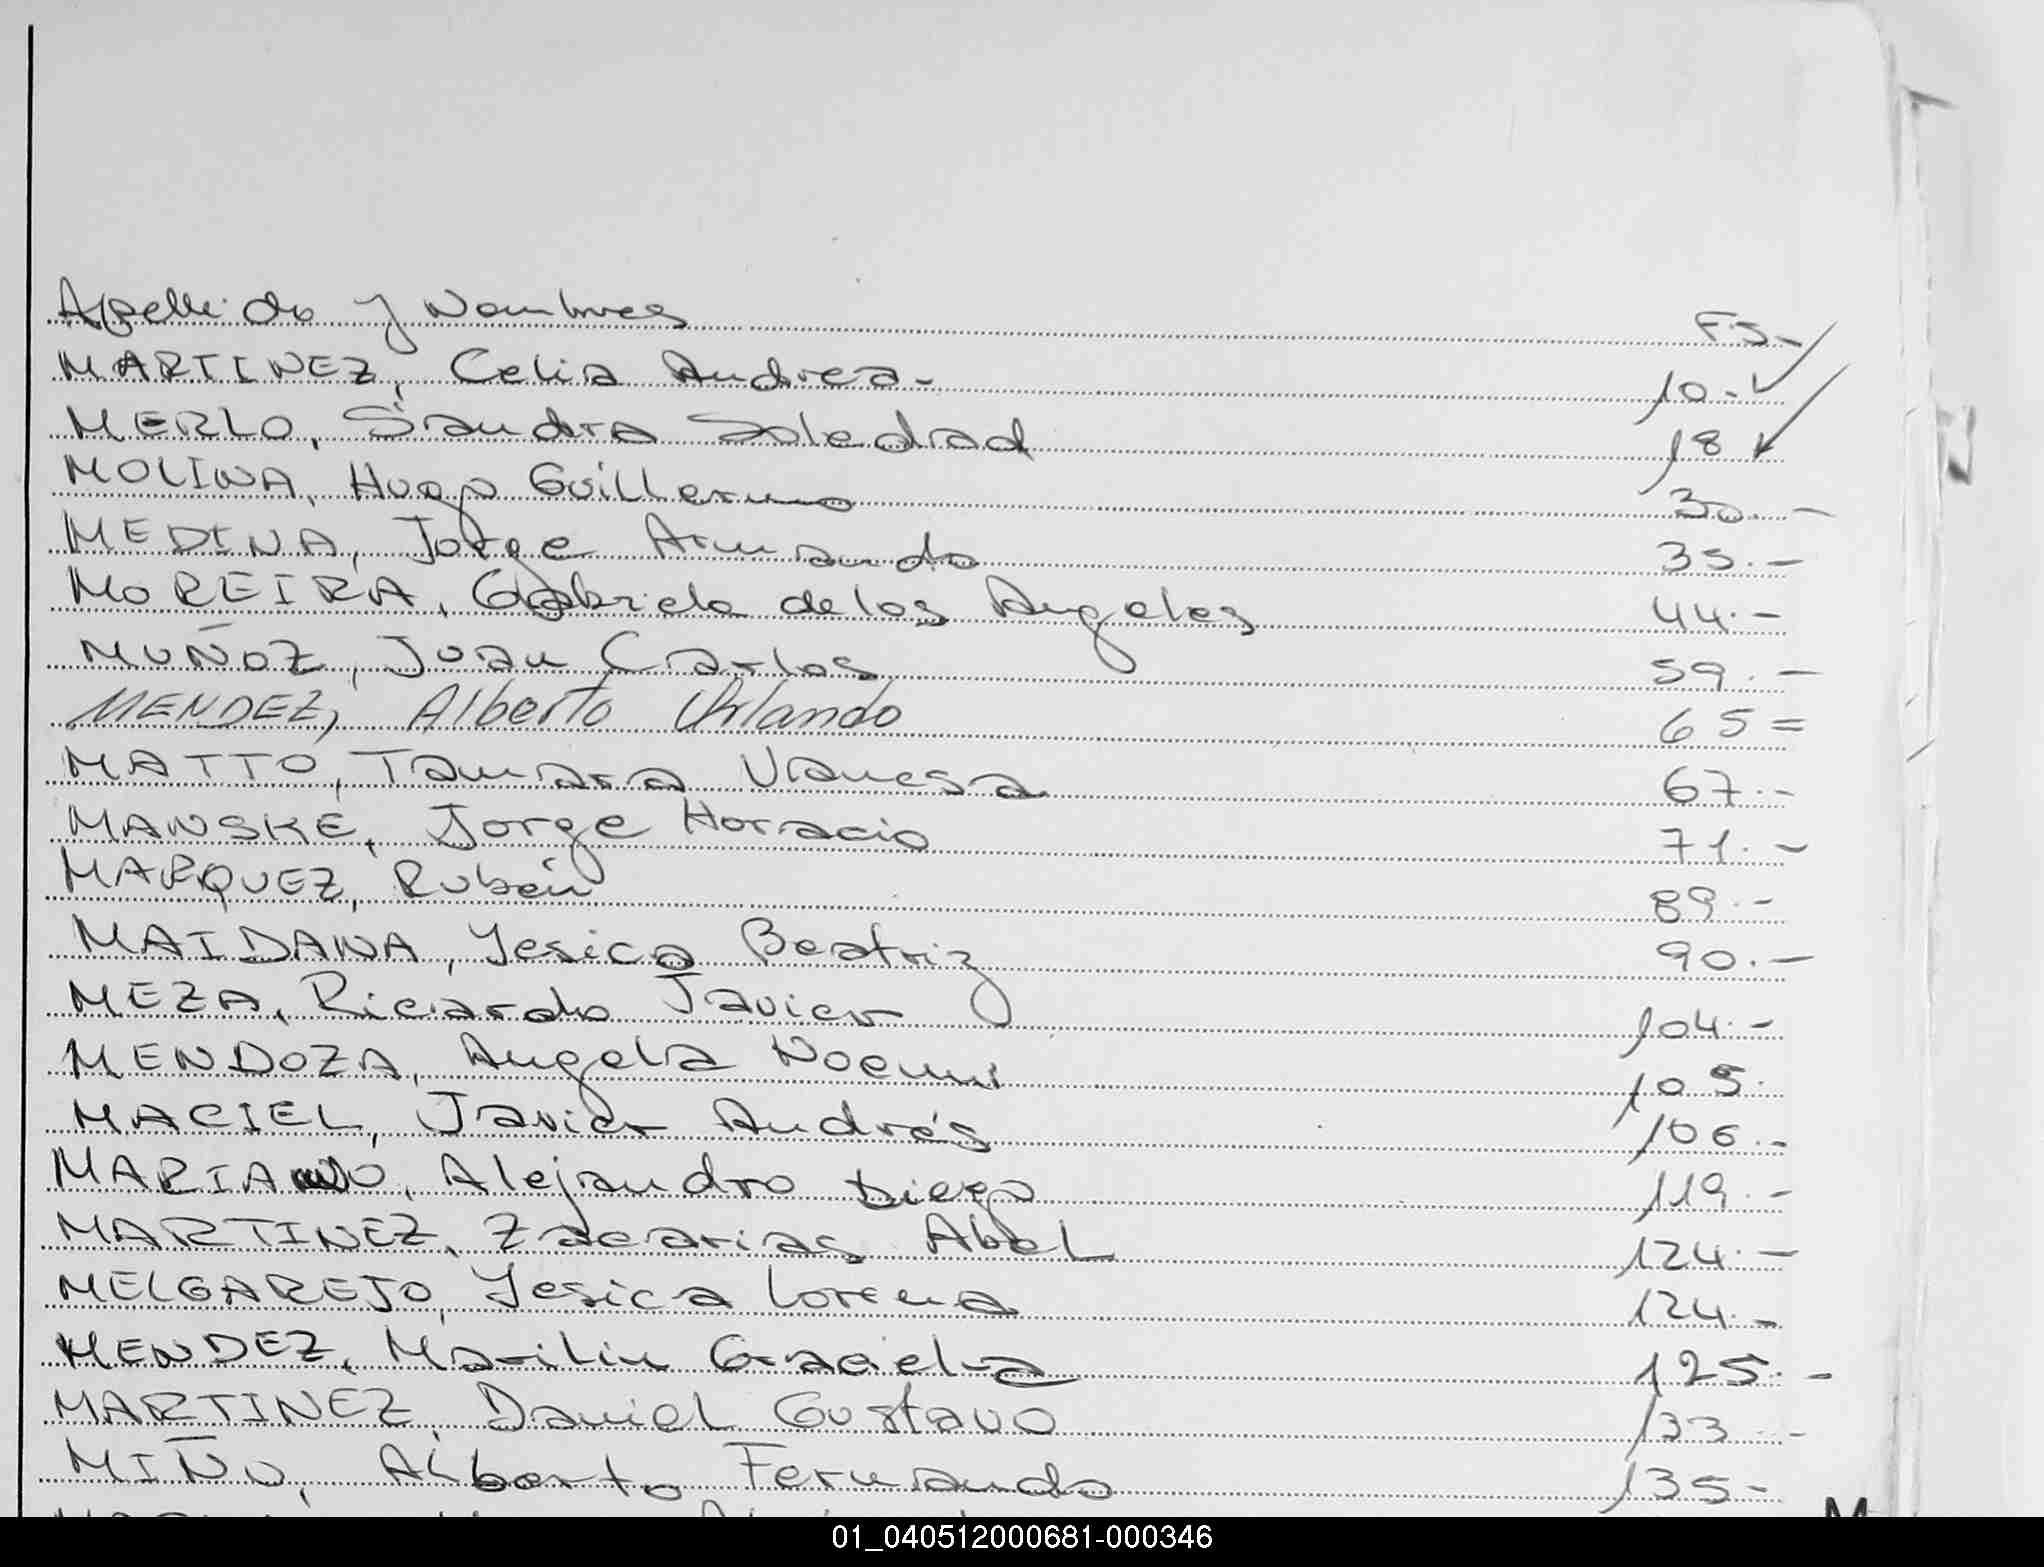 Apellido y Nombres FS-
MARTINEZ, Celia Andrea- 10.-
MERLO, Sandra Soledad 18
MOLINA, Hugo Guillermo 30.-
MEDINA, Jorge Armando 35.-
MOREIRA, Gabriela de los Angeles 44.-
MUÑOZ, Juan Carlos 59.-
MENDEZ, Alberto Orlando 65=
MATTO, Tamara Vanesa 67.-
MANSKE, Jorge Horacio 71.-
MARQUEZ, Rubén 89.-
MAIDANA, Yesica Beatriz 90.-
MEZA, Ricardo Javier 104.-
MENDOZA, Angela Noemi 105.
MACIEL, Javier Andrés 106.-
MARIANO, Alejandro Diego 119.-
MARTINEZ, Zacarias Abel 124.-
MELGAREJO, Yesica Lorena 124.-
MENDEZ, Marilin Graciela 125.-
MARTINEZ, Daniel Gustavo 133.-
MIÑO, Alberto Fernando 135-
M
01_040512000681-000346